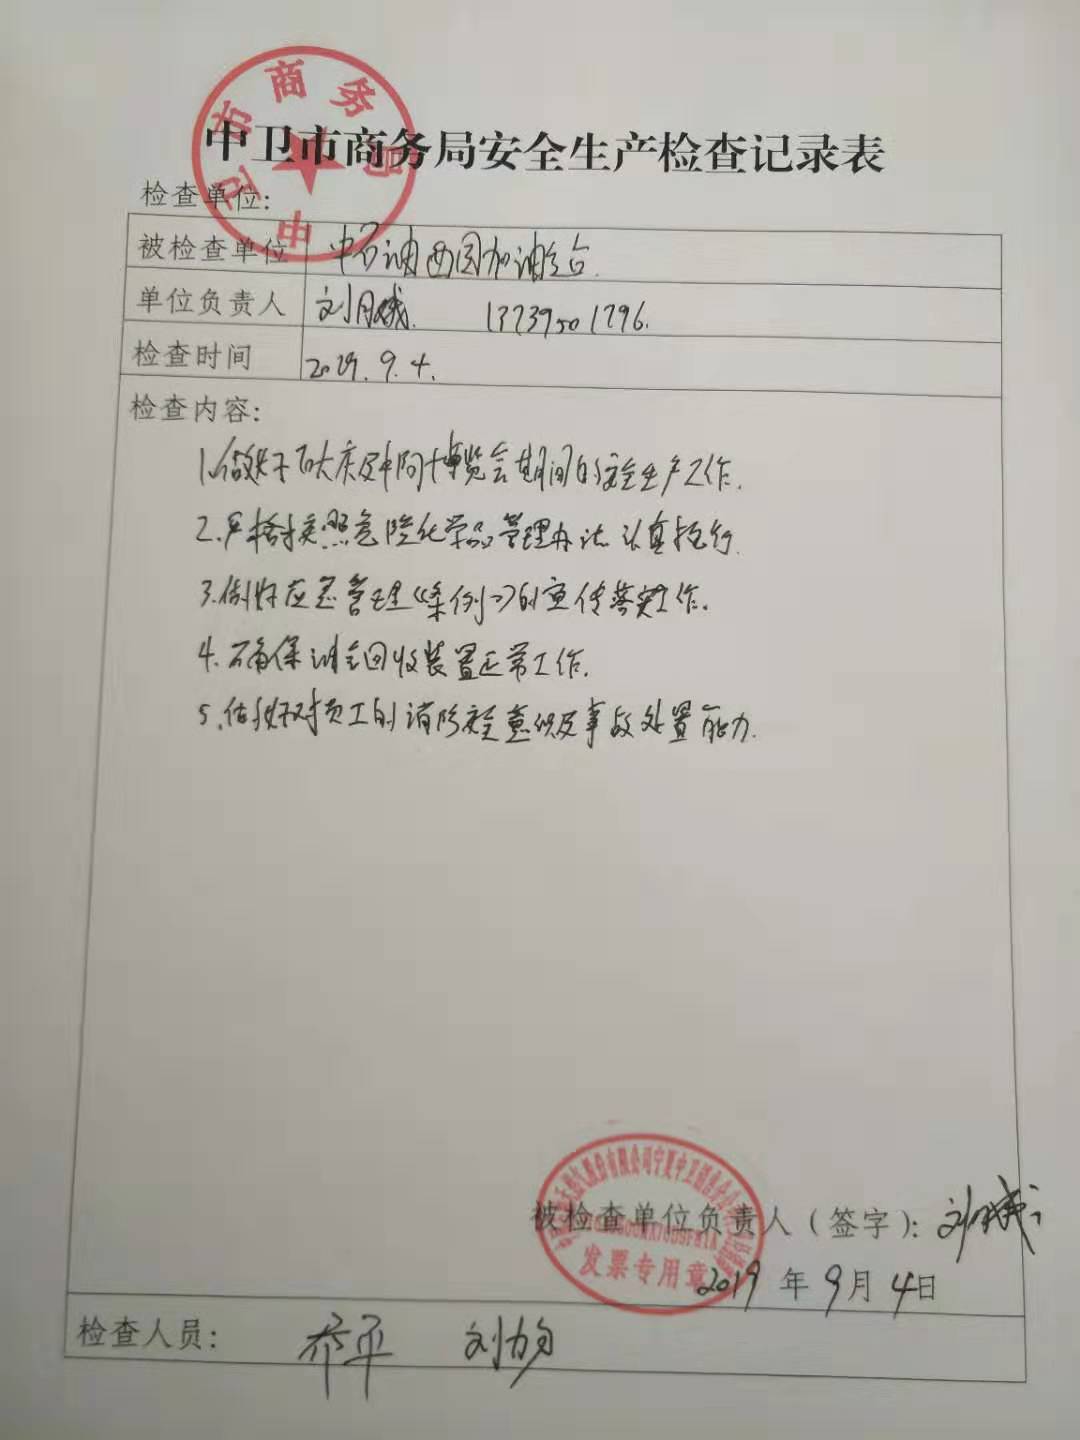 中卫市商务局
中卫市商务局安全生产检查记录表
检查单位:
被检查单位 中石油西园加油站.
单位负责人 刘月娥. 13739501796.
检查时间 2019.9.4.
检查内容:
1.做好大庆及中阿博览会期间的安全生产工作.
2.严格按照危险化学品管理办法认真执行.
3.做好应急管理《条例》的宣传落实工作.
4.确保油气回收装置正常工作.
5.做好对员工的消防安全意识及事故处置能力.
股份有限公司宁夏中卫销售分公司
发票专用章
被检查单位负责人（签字）: 刘月娥
2019年9月4日
检查人员: 乔平 刘